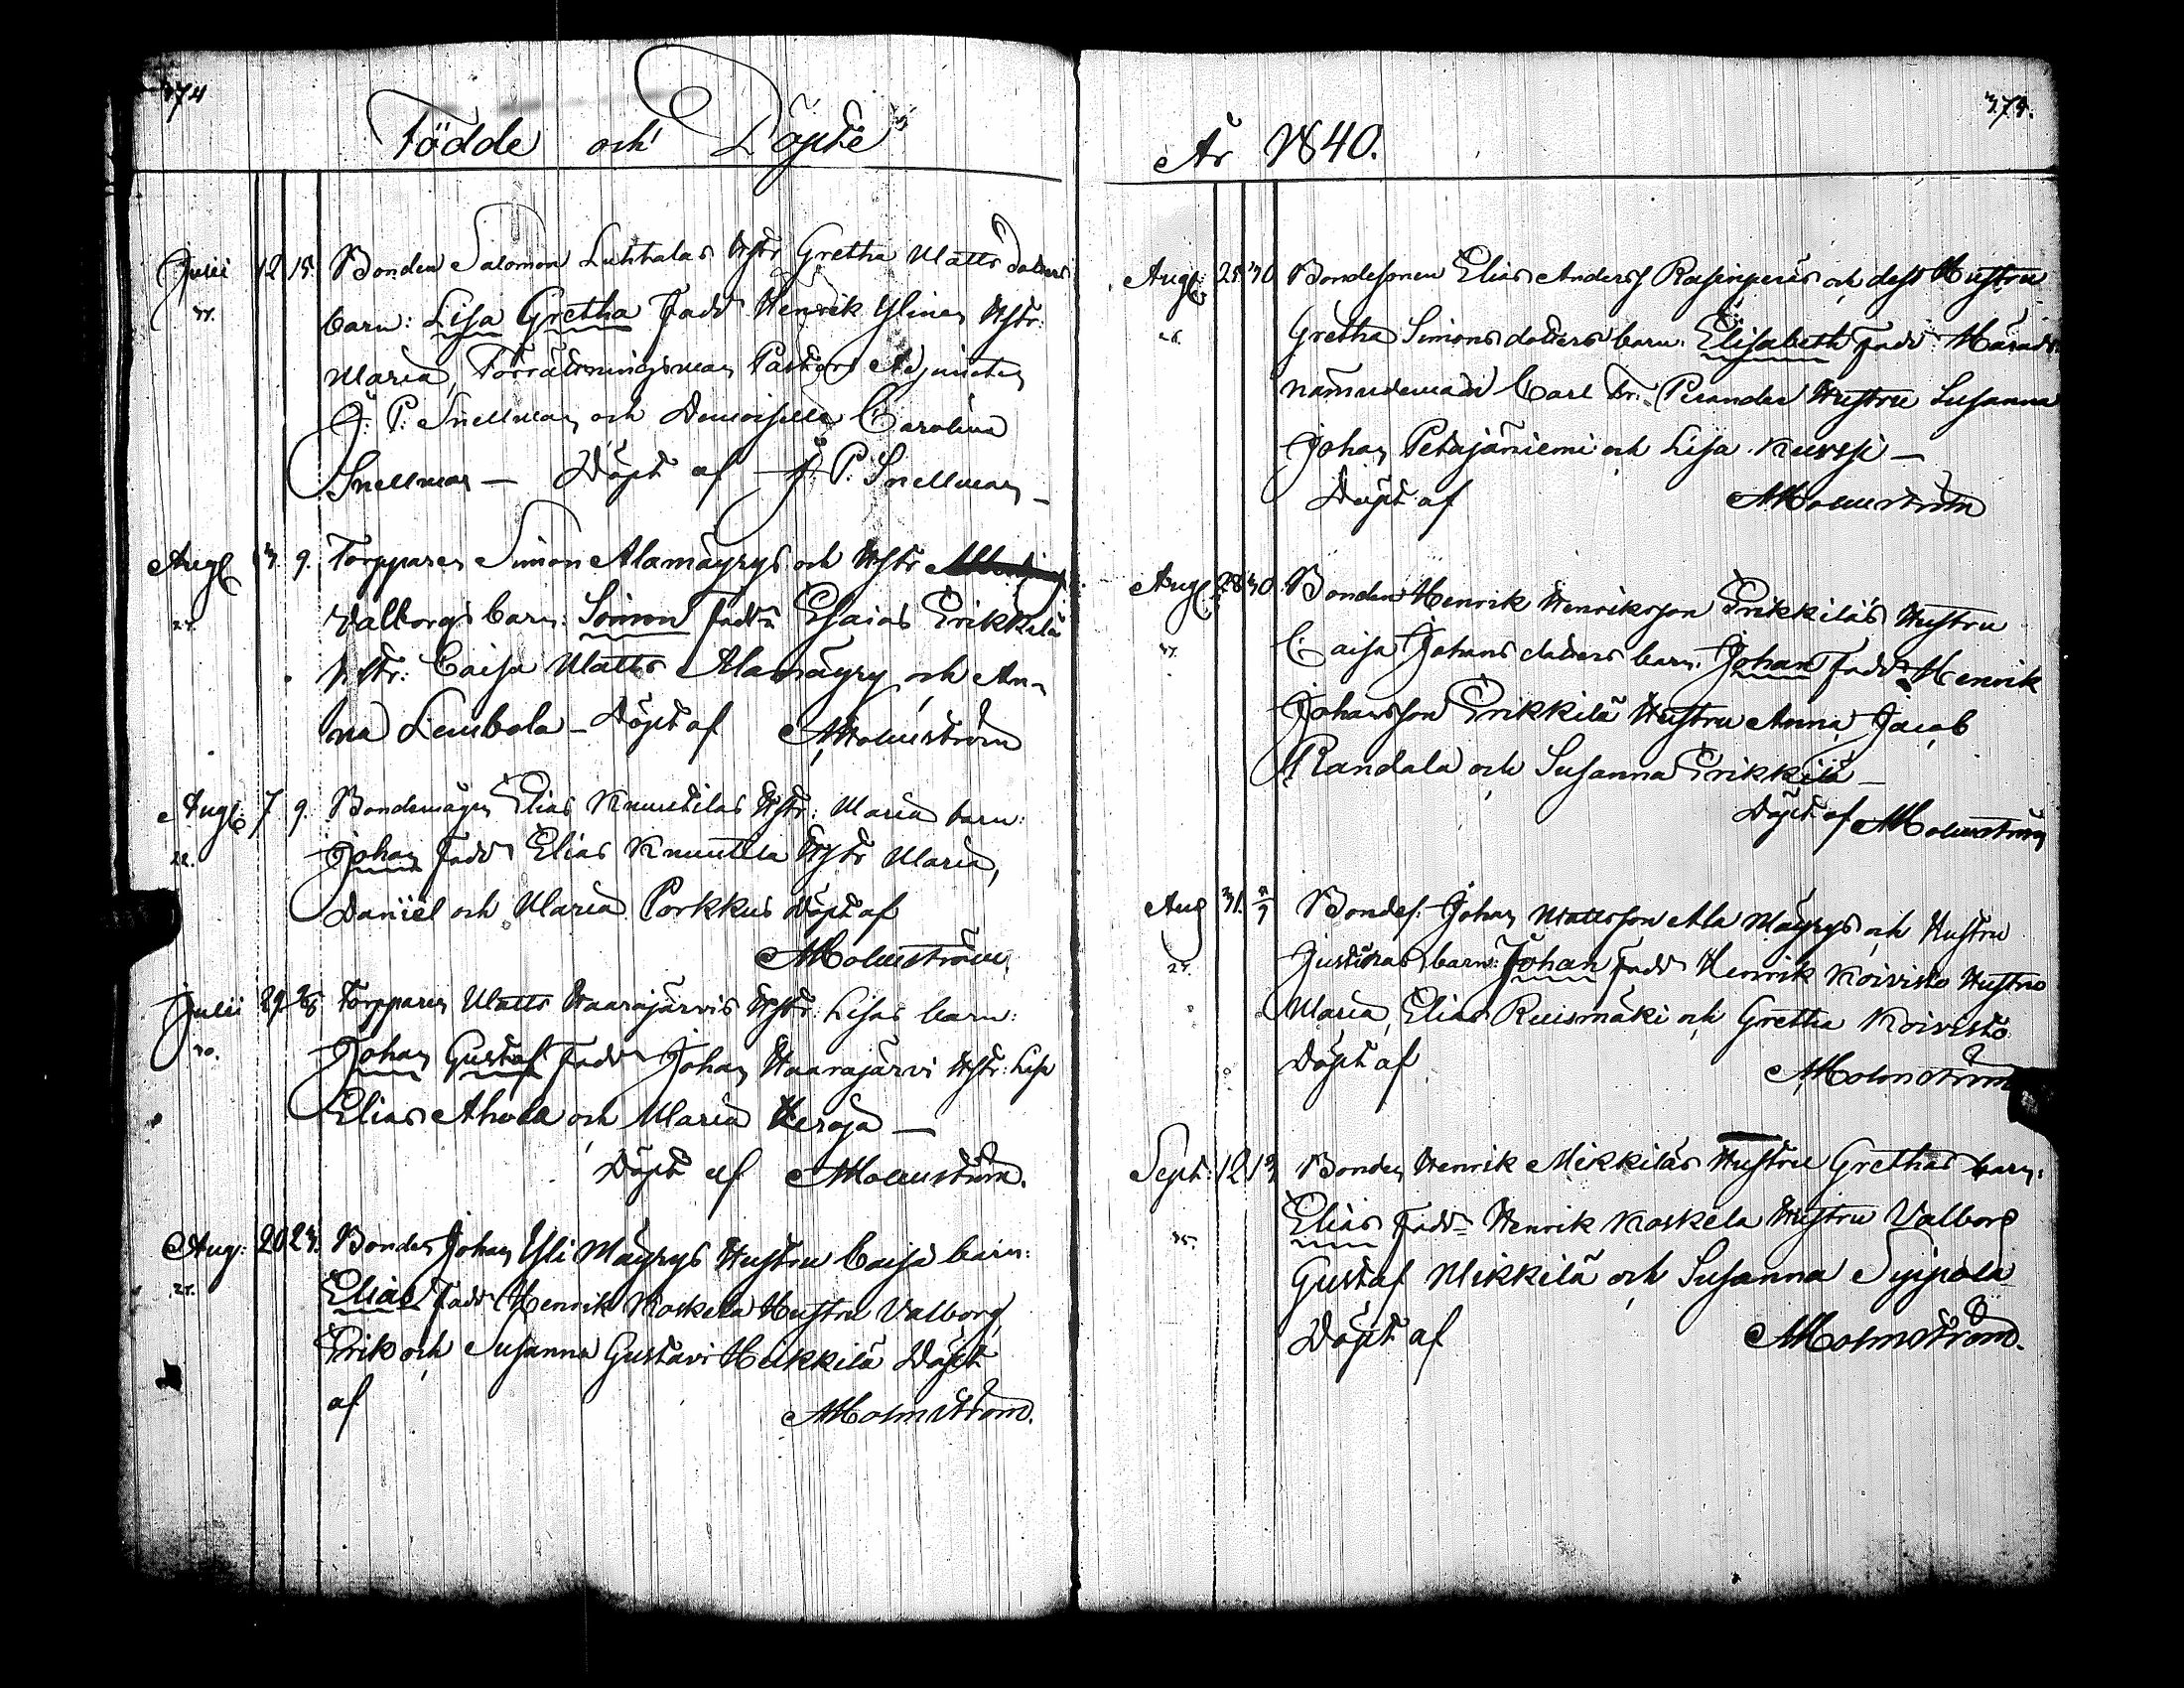 374
Födde och Döpte
Julii 12 15. Bonden Salomon Luhtalas Hstr Gretha Matts dotters
barn: Lisa Gretha Fadd Henrik Ylinen Hstr:
Maria, Förrättningsman Pastors Adjuncten
J. P. Snellman och Demoiselle Carolina
Snellman — Döpt af J. P. Snellman —
Aug 3. 9. Torpparen Simon Alamäyrys och Hstr
27. Valborgs barn: Simon Fadd Esaias Erikkilä
Hstr: Caisa Matts Alamäyry och An-
na Lembola — Döpt af AHolmström
Aug: 7 9. Bondemågen Elias Knuutilas Hstr: Maria barn:
22. Johan Fadd Elias Knuutila Hstr Maria,
Daniel och Maria Porkkus Döpt af
AHolmström
Julii 29 Torpparen Matts Haarajärvis Hstr: Lisas barn:
Johan Gustaf Fadd Johan Haarajärvi Hstr: Lisa
Elias Ahola och Maria Heroja —
Döpt af AHolmström.
Aug: 20 23. Bonden Johan Yli Mäyrys Hustru Caisa barn:
Elias Fadd Henrik Koskela Hustru Valborg
Erik och Susanna Gustavi Heikkilä Döpt
af AHolmström.
375.
År 1840.
Aug: 25 30 Bondesonen Elias Anders Rasinperäs och dess Hustru
26. Gretha Simons dotters barn: Elisabeth Fadd: Härads-
nämndeman Carl Fr: Perander Hustru Susanna
Johan Petäjäniemi och Lisa Kurssi —
Döpt af AHolmström
Aug 28 30 Bonden Henrik Henriksson Erikkiläs Hustru
Caisa Johans dotters barn: Johan Fadd Henrik
Johansson Erikkilä Hustru Anna, Jacob
Randala och Susanna Erikkilä —
Döpt af AHolmström
Aug 31. Bondes. Johan Mattsson Ala Mäyrys och Hustru
Justinas barn: Johan Fadd Henrik Koivisto Hustru
Maria, Elias Ruismäki och Gretha Koivisto
Döpt af AHolmström
Sept: 12 13 Bonden Henrik Mikkiläs Hustru Grethas barn:
Elias Fadd Henrik Koskela Hustru Valborg
Gustaf Mikkilä och Susanna Syipola
Döpt af AHolmström.